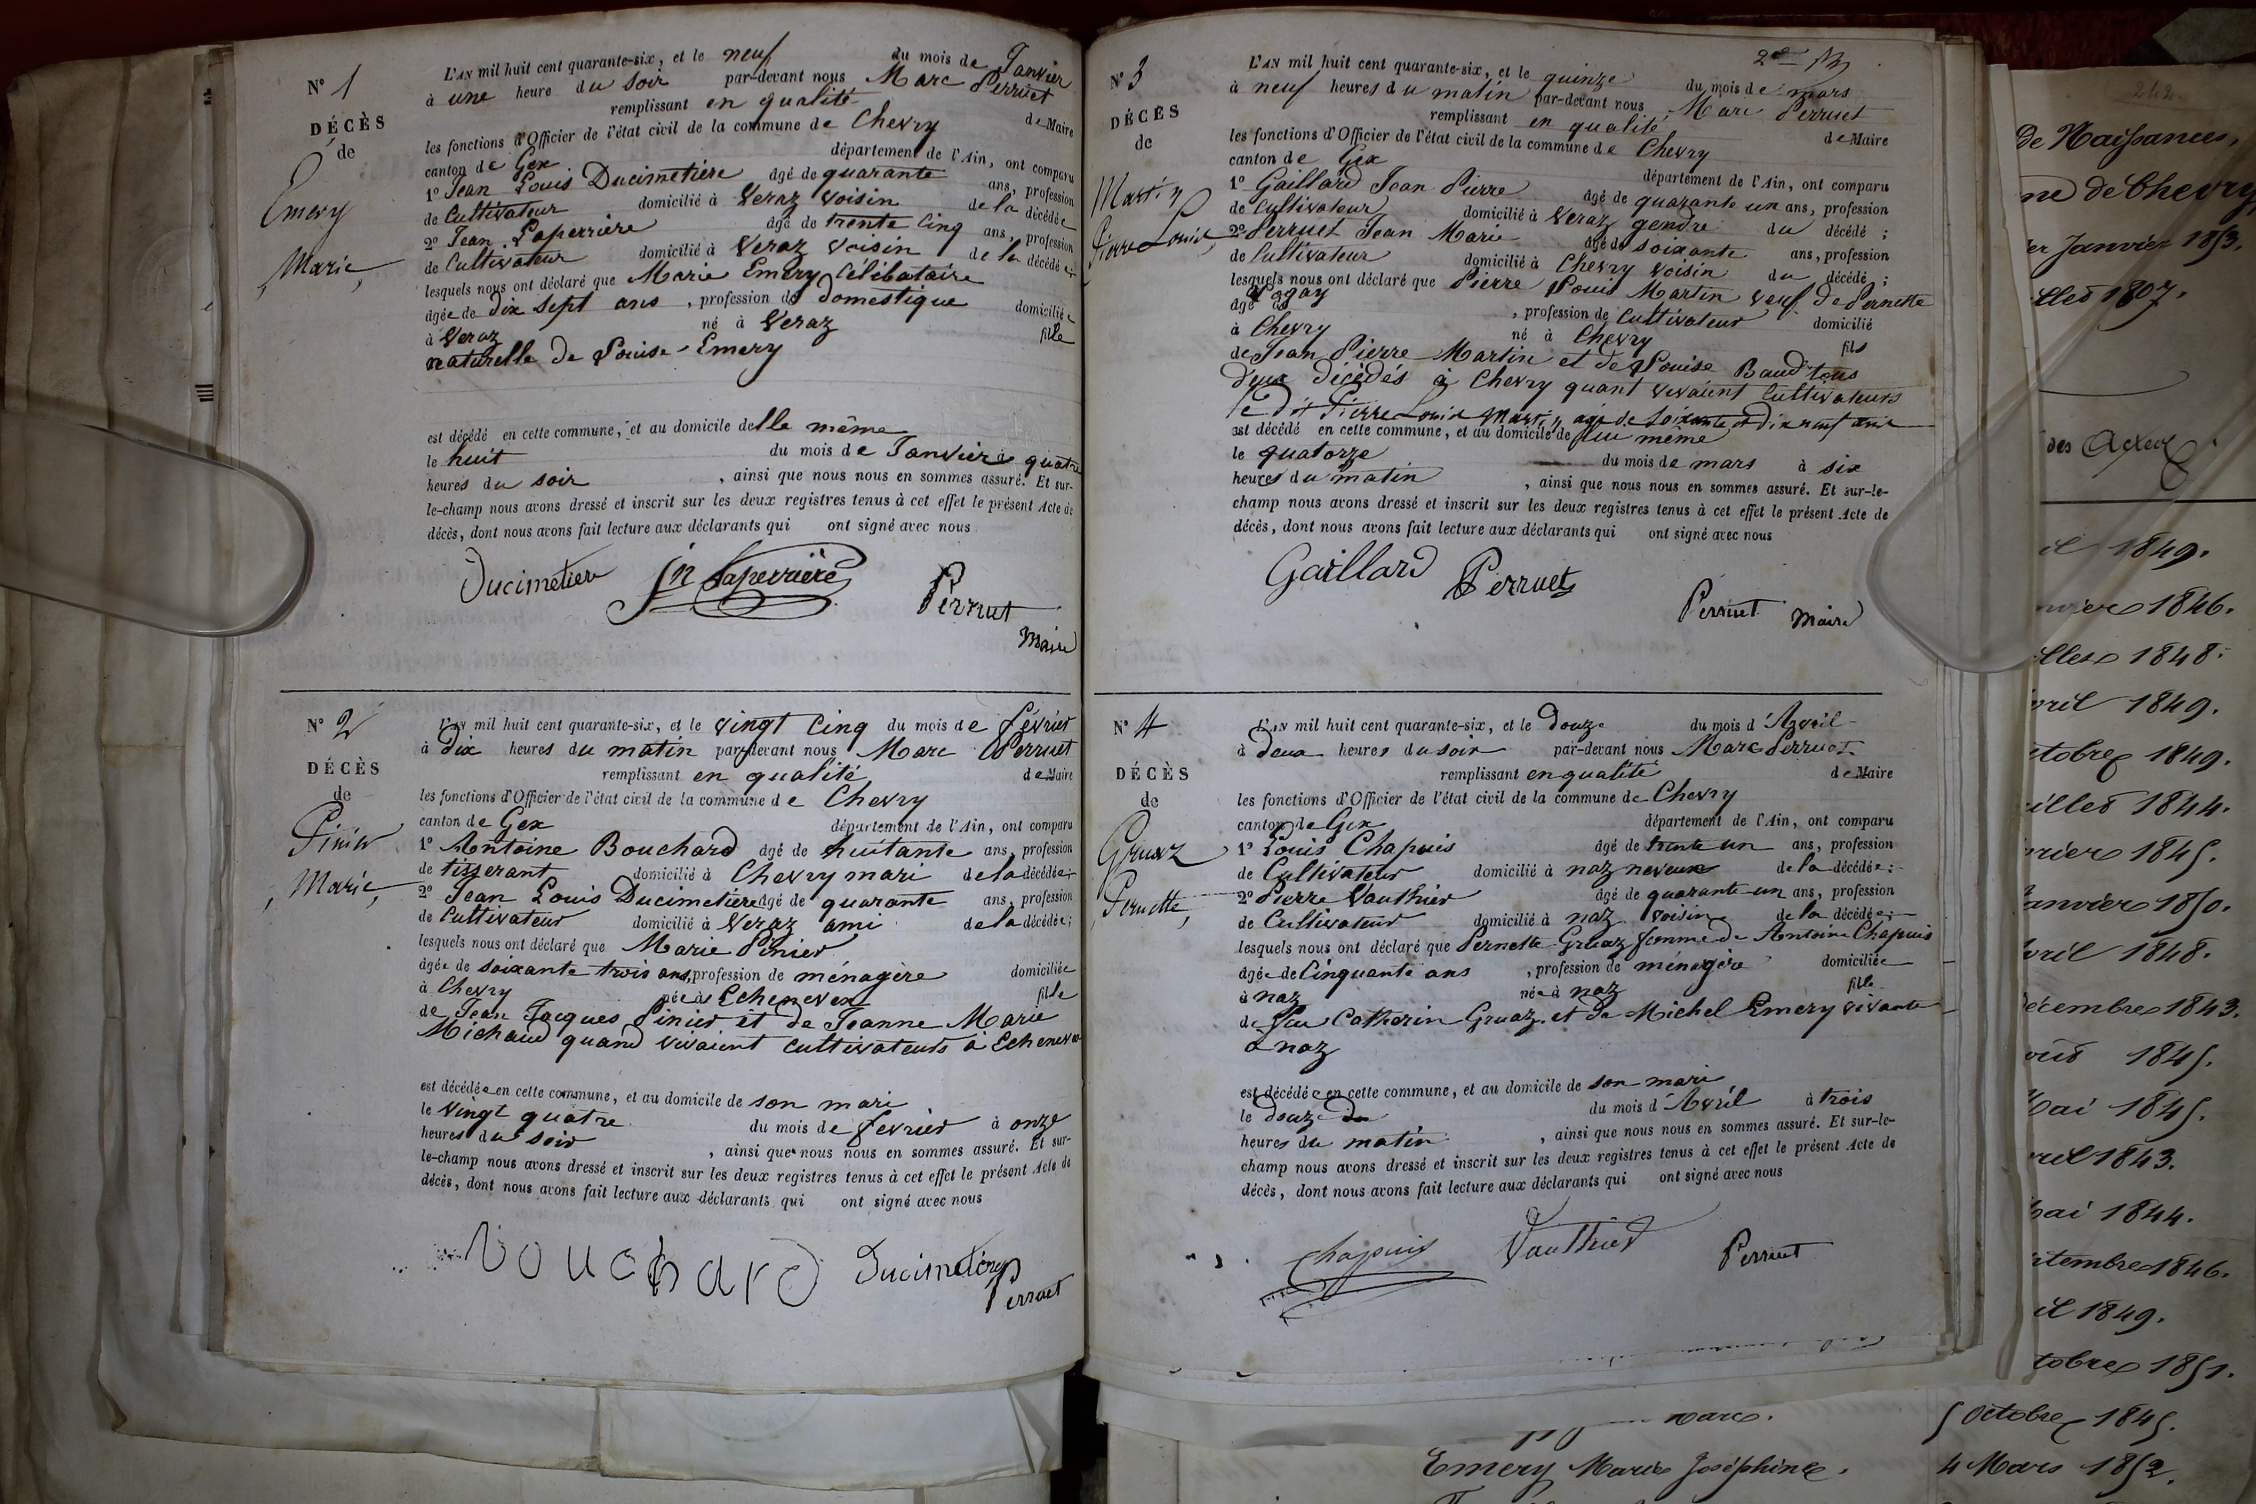 N° 1
DÉCÈS
de
Emery
Marie
L'AN mil huit cent quarante-six, et le neuf du mois de Janvier
à une heure du soir par-devant nous Marc Perruet
remplissant en qualité de Maire
les fonctions d'Officier de l'état civil de la commune de Chevry
canton de Gex département de l'Ain, ont comparu
1° Jean Louis Ducimetière âgé de quarante ans, profession
de Cultivateur domicilié à Veraz voisin de la décédée
2° Jean Laperrière âgé de trente cinq ans, profession
de Cultivateur domicilié à Veraz voisin de la décédée;
lesquels nous ont déclaré que Marie Emery Célibataire
âgée de dix sept ans, profession de domestique domiciliée
à Veraz né à Veraz fille
naturelle de Louise Emery
est décédé en cette commune, et au domicile delle même
le huit du mois de Janvier à quatre
heures du soir, ainsi que nous nous en sommes assuré. Et sur-
le-champ nous avons dressé et inscrit sur les deux registres tenus à cet effet le présent Acte de
décès, dont nous avons fait lecture aux déclarants qui ont signé avec nous
Ducimetière Jn Laperrière Perruet
Maire
N° 2
DÉCÈS
de
Pinier
Marie
L'AN mil huit cent quarante-six, et le vingt cinq du mois de Février
à dix heures du matin par-devant nous Marc Perruet
remplissant en qualité de Maire
les fonctions d'Officier de l'état civil de la commune de Chevry
canton de Gex département de l'Ain, ont comparu
1° Antoine Bouchard âgé de huitante ans, profession
de tisserant domicilié à Chevry mari de la décédée
2° Jean Louis Ducimetière âgé de quarante ans, profession
de Cultivateur domicilié à Veraz ami de la décédée;
lesquels nous ont déclaré que Marie Pinier
âgée de soixante trois ans, profession de ménagère domiciliée
à Chevry née à Echenevex fille
de Jean Jacques Pinier et de Jeanne Marie
Michaud quand vivaient cultivateurs à Echenevex
est décédée en cette commune, et au domicile de son mari
le vingt quatre du mois de fevrier à onze
heures du soir, ainsi que nous nous en sommes assuré. Et sur-
le-champ nous avons dressé et inscrit sur les deux registres tenus à cet effet le présent Acte de
décès, dont nous avons fait lecture aux déclarants qui ont signé avec nous
Bouchard Ducimetière
Perruet
N° 3
DÉCÈS
de
Martin
Pierre Louis
L'AN mil huit cent quarante-six, et le quinze du mois de mars
à neuf heures du matin par-devant nous Marc Perruet
remplissant en qualité de Maire
les fonctions d'Officier de l'état civil de la commune de Chevry
canton de Gex département de l'Ain, ont comparu
1° Gaillard Jean Pierre âgé de quarante un ans, profession
de Cultivateur domicilié à Veraz gendre du décédé;
2° Perruet Jean Marie âgé de soixante ans, profession
de Cultivateur domicilié à Chevry voisin du décédé;
lesquels nous ont déclaré que Pierre Louis Martin veuf de Pernette
âgé de, profession de Cultivateur domicilié
à Chevry né à Chevry fils
de Jean Pierre Martin et de Louise Baud tous
deux décédés à Chevry quant vivaient Cultivateurs
le dit Pierre Louis Martin, agé de soixante et dix neuf ans
est décédé en cette commune, et au domicile de lui même
le quatorze du mois de mars à six
heures du matin, ainsi que nous nous en sommes assuré. Et sur-le-
champ nous avons dressé et inscrit sur les deux registres tenus à cet effet le présent Acte de
décès, dont nous avons fait lecture aux déclarants qui ont signé avec nous
Gaillard Perruet
Perruet Maire
N° 4
DÉCÈS
de
Gruaz
Pernette
L'AN mil huit cent quarante-six, et le douze du mois d'Avril
à deux heures du soir par-devant nous Marc Perruet
remplissant en qualité de Maire
les fonctions d'Officier de l'état civil de la commune de Chevry
canton de Gex département de l'Ain, ont comparu
1° Louis Chapuis âgé de trente un ans, profession
de Cultivateur domicilié à naz neveux de la décédée;
2° Pierre Vauthier âgé de quarante un ans, profession
de Cultivateur domicilié à naz voisin de la décédée;
lesquels nous ont déclaré que Pernette Gruaz femme de Antoine Chapuis
âgée de Cinquante ans, profession de ménagère domiciliée
à naz née à naz fille
de feu Catherin Gruaz et de Michel Emery vivante
à naz
est décédée en cette commune, et au domicile de son mari
le douze du mois d'Avril à trois
heures du matin, ainsi que nous nous en sommes assuré. Et sur-le-
champ nous avons dressé et inscrit sur les deux registres tenus à cet effet le présent Acte de
décès, dont nous avons fait lecture aux déclarants qui ont signé avec nous
Chapuis Vauthier Perruet
de Naissances,
ne de Chevry
er Janvier 1853.
1807.
des Actes
1849.
1846.
1848.
vril 1849.
ctobre 1849.
1844.
vrier 1845.
Janvier 1850.
Avril 1848.
écembre 1843.
1845.
Mai 1845.
1843.
Mai 1844.
tembre 1846.
il 1849.
tobre 1851.
5 Octobre 1845.
Emery Marie Joséphine. 4 Mars 1852.